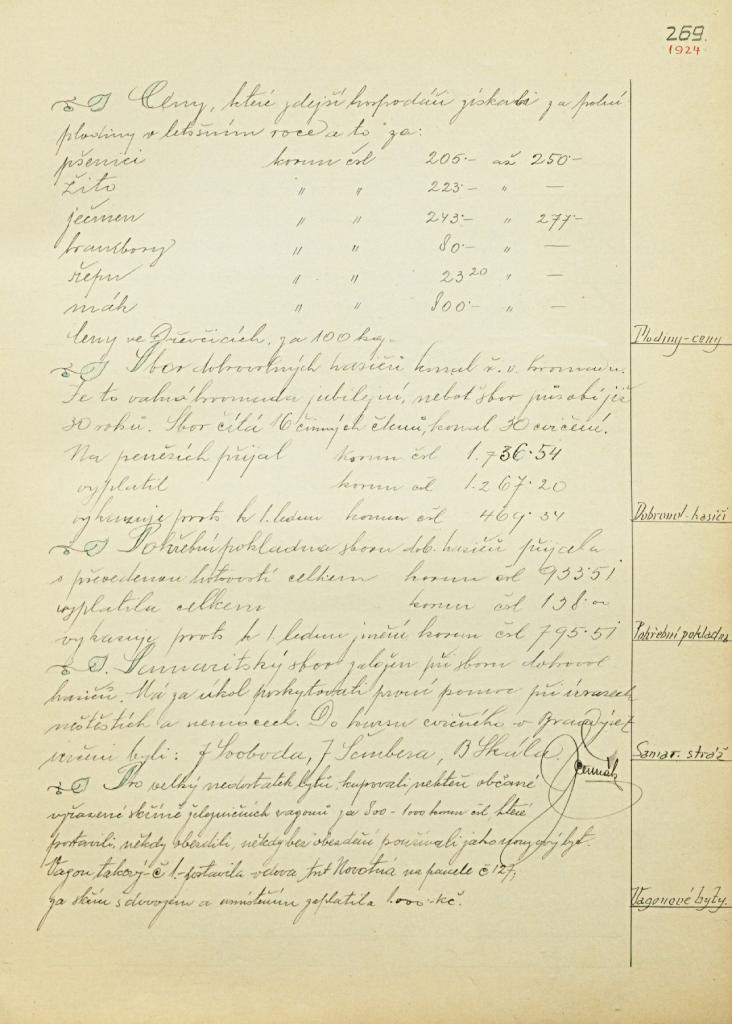 269.
1924
Ceny, které zdejší hospodáři získali za polní
plodiny v letošním roce a to za:
pšenici korun čsl 205·– až 250·–
žito " " 223·– " —
ječmen " " 243·– " 277·–
brambory " " 80·– " —
řepu " " 23 20 " —
mák " " 800·– " —
Ceny ve Dřevčicích, za 100 kg.
Plodiny-ceny
Sbor dobrovolných hasičů konal ř. v. hromadu.
Je to valná hromada jubilejní, neboť sbor působí již
30 roků. Sbor čítá 16 činných členů, konal 30 cvičení.
Na penězích přijal korun čsl 1.736·54
vyplatil korun čsl 1.267·20
vykazuje prots k 1. lednu korun čsl 469·34
Dobrovol-hasiči
Pohřební pokladna sboru dob. hasičů přijala
s převedenou hotovostí celkem korun čsl 933·51
vyplatila celkem korun čsl 138·–
vykazuje prots k 1. lednu jmění korun čsl 795·51
Pohřební pokladna
Samaritský sbor založen při sboru dobrovol
hasičů. Má za úkol poskytovati první pomoc při úrazech
neštěstích a nemocech. Do kursu cvičného v Brandýse
určeni byli: J Svoboda, J Sembera, B Skála.
Samar. stráž
Čermák
Pro velký nedostatek bytů, kupovali někteří občané
vyřazené skříně železničních vagonů za 800-1000 korun čsl, které
postavili, někdy obezdili, někdy bez obezdění používali jako nouzový byt.
Vagon takový č 1. postavila vdova Ant Novotná na parcele č 127,
za skříň s dovozem a umístěním zaplatila 1.000 kč.
Vagonové byty.